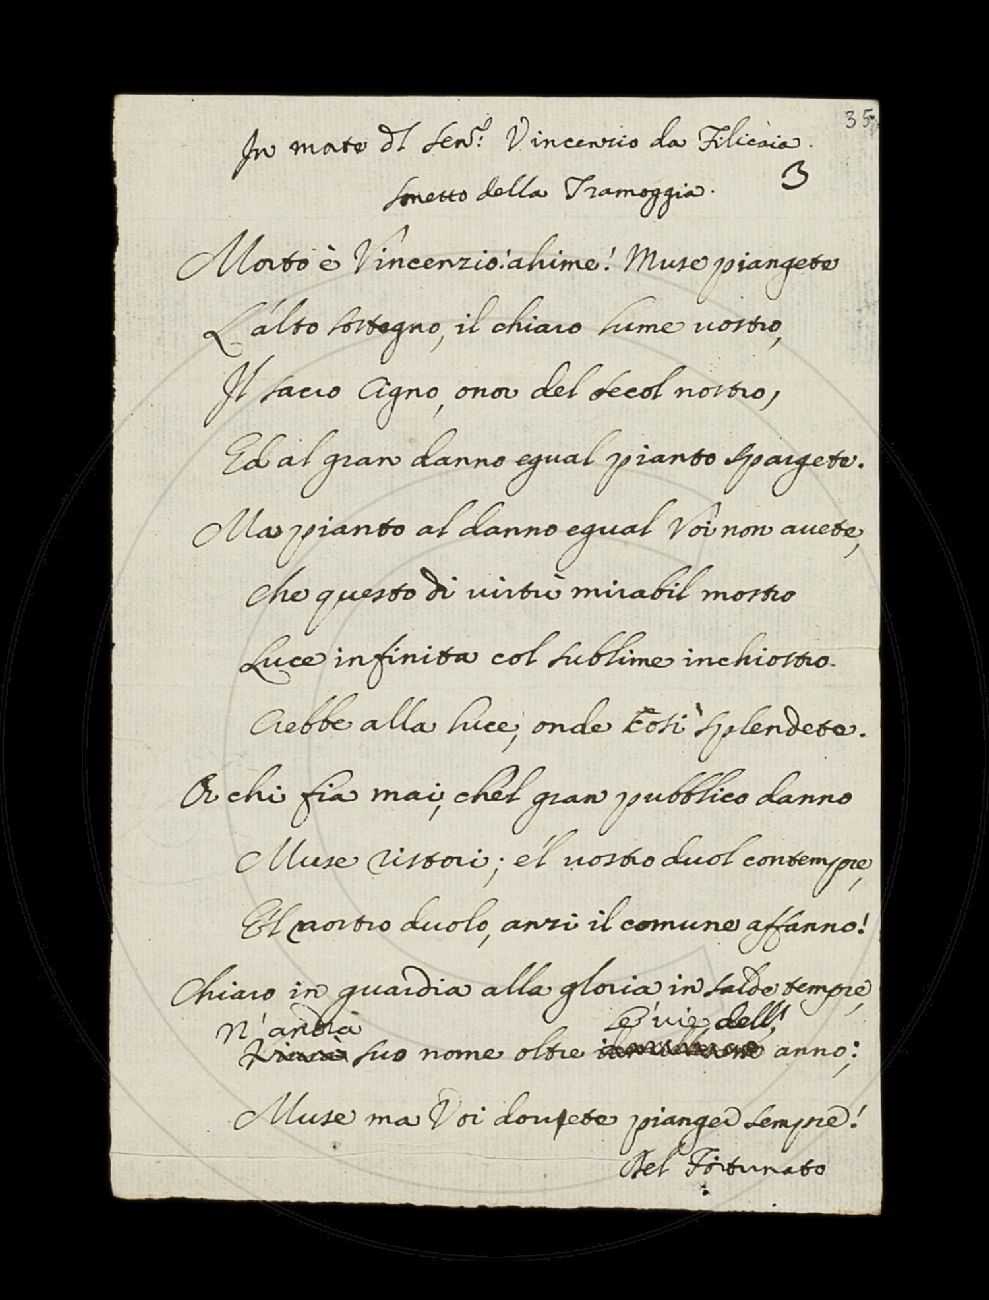 35
In morte dl Sen.r Vincenzio da Filicaia.
3
Sonetto della Tramoggia.
Morto è Vincenzio! ahime! Muse piangete
L'alto sostegno, il chiaro lume vostro,
Il sacro Cigno, onor del secol nostro,
Ed al gran danno egual pianto spargete.
Ma pianto al danno egual Voi non avete,
Che questo di virtù mirabil mostro
Luce infinita col sublime inchiostro
Crebbe alla luce, onde così splendete.
Or chi fia mai, che'l gran pubblico danno
Muse ristori; e'l vostro duol contempre,
E'l nostro duolo, anzi il comune affanno!
Chiaro in guardia alla gloria in salde tempre,
N'andrà le vie dell'
suo nome oltre anno;
Muse ma Voi dovrete pianger sempre!
Del Fortunato